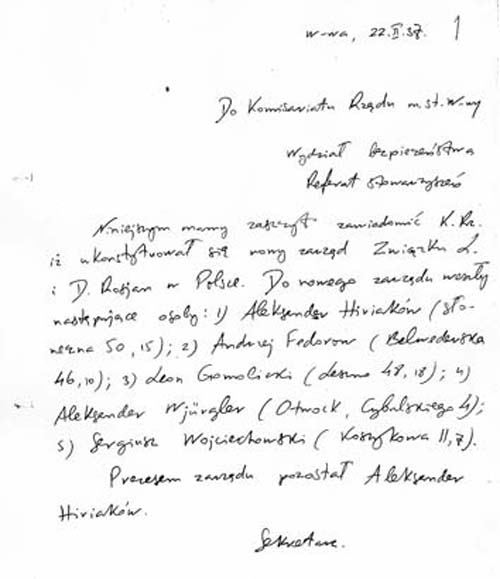 W-wa, 22.II.37. 1
Do Komisariatu Rządu m.st. W-wy
Wydział bezpieczeństwa
Referat stowarzyszeń
Niniejszym mamy zaszczyt zawiadomić K.Rz.
iż ukonstytuował się nowy zarząd Związku L.
i D. Rosjan w Polsce. Do nowego zarządu weszły
następujące osoby: 1) Aleksander Hiriaków (Sło-
neczna 50, 15); 2) Andrzej Fedorow (Belwederska
46, 10); 3) Leon Gomolicki (Leszno 48, 18); 4)
Aleksander Wjürgler (Otwock, Cybulskiego 4);
5) Sergiusz Wojciechowski (Koszykowa 11, 7).
Prezesem zarządu pozostał Aleksander
Hiriaków.
Sekretarz.